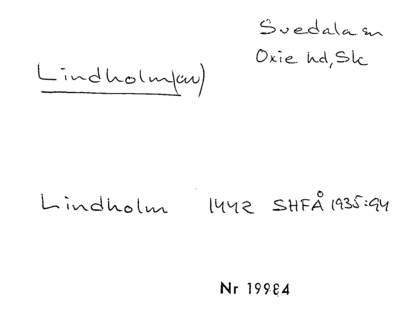 Svedala sn
Oxie hd, Sk
Lindholm(en)
Lindholm 1442 SHFÅ 1935:94
Nr 19984